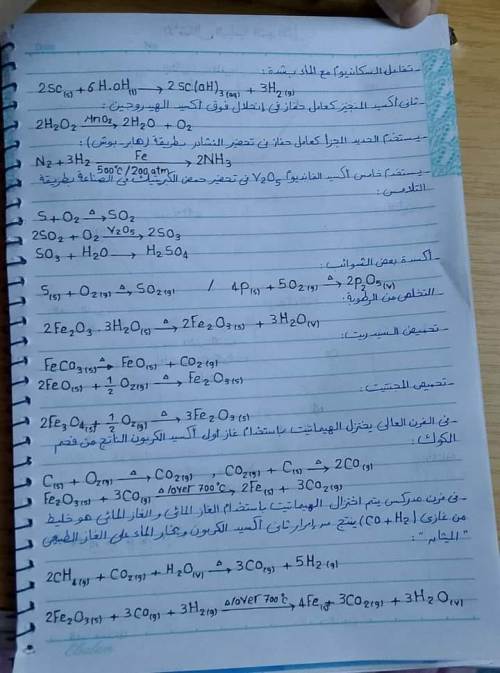 - تفاعل السكانديوم مع الماء بشدة:
2Sc(s) + 6H.OH(l) → 2Sc(OH)3(aq) + 3H2(g)
- ثاني أكسيد المنجنيز كعامل حفاز في انحلال فوق أكسيد الهيدروجين:
2H2O2 —MnO2→ 2H2O + O2
- يستخدم الحديد المجزأ كعامل حفاز في تحضير النشادر بطريقة (هابر-بوش):
N2 + 3H2 —Fe / 500°C/200 atm→ 2NH3
- يستخدم خامس أكسيد الفانديوم V2O5 في تحضير حمض الكبريتيك في الصناعة بطريقة
التلامس:
S + O2 —Δ→ SO2
2SO2 + O2 —V2O5→ 2SO3
SO3 + H2O → H2SO4
- أكسدة بعض الشوائب:
S(s) + O2(g) —Δ→ SO2(g) / 4P(s) + 5O2(g) —Δ→ 2P2O5(v)
- التخلص من الرطوبة:
2Fe2O3 . 3H2O(s) —Δ→ 2Fe2O3(s) + 3H2O(v)
- تحميص السيدريت:
FeCO3(s) —Δ→ FeO(s) + CO2(g)
2FeO(s) + 1/2 O2(g) —Δ→ Fe2O3(s)
- تحميص المجنتيت:
2Fe3O4(s) + 1/2 O2(g) —Δ→ 3Fe2O3(s)
- في الفرن العالي يختزل الهيماتيت باستخدام غاز أول أكسيد الكربون الناتج من فحم
الكوك:
C(s) + O2(g) —Δ→ CO2(g) , CO2(g) + C(s) —Δ→ 2CO(g)
Fe2O3(s) + 3CO(g) —Δ/over 700°C→ 2Fe(s) + 3CO2(g)
- في فرن مدركس يتم اختزال الهيماتيت باستخدام الغاز المائي و الغاز المائي هو خليط
من غازي (CO + H2) ينتج من إمرار ثاني أكسيد الكربون و بخار الماء على الغاز الطبيعي
"الميثان":
2CH4(g) + CO2(g) + H2O(v) —Δ→ 3CO(g) + 5H2(g)
2Fe2O3(s) + 3CO(g) + 3H2(g) —Δ/over 700°C→ 4Fe(s) + 3CO2(g) + 3H2O(v)